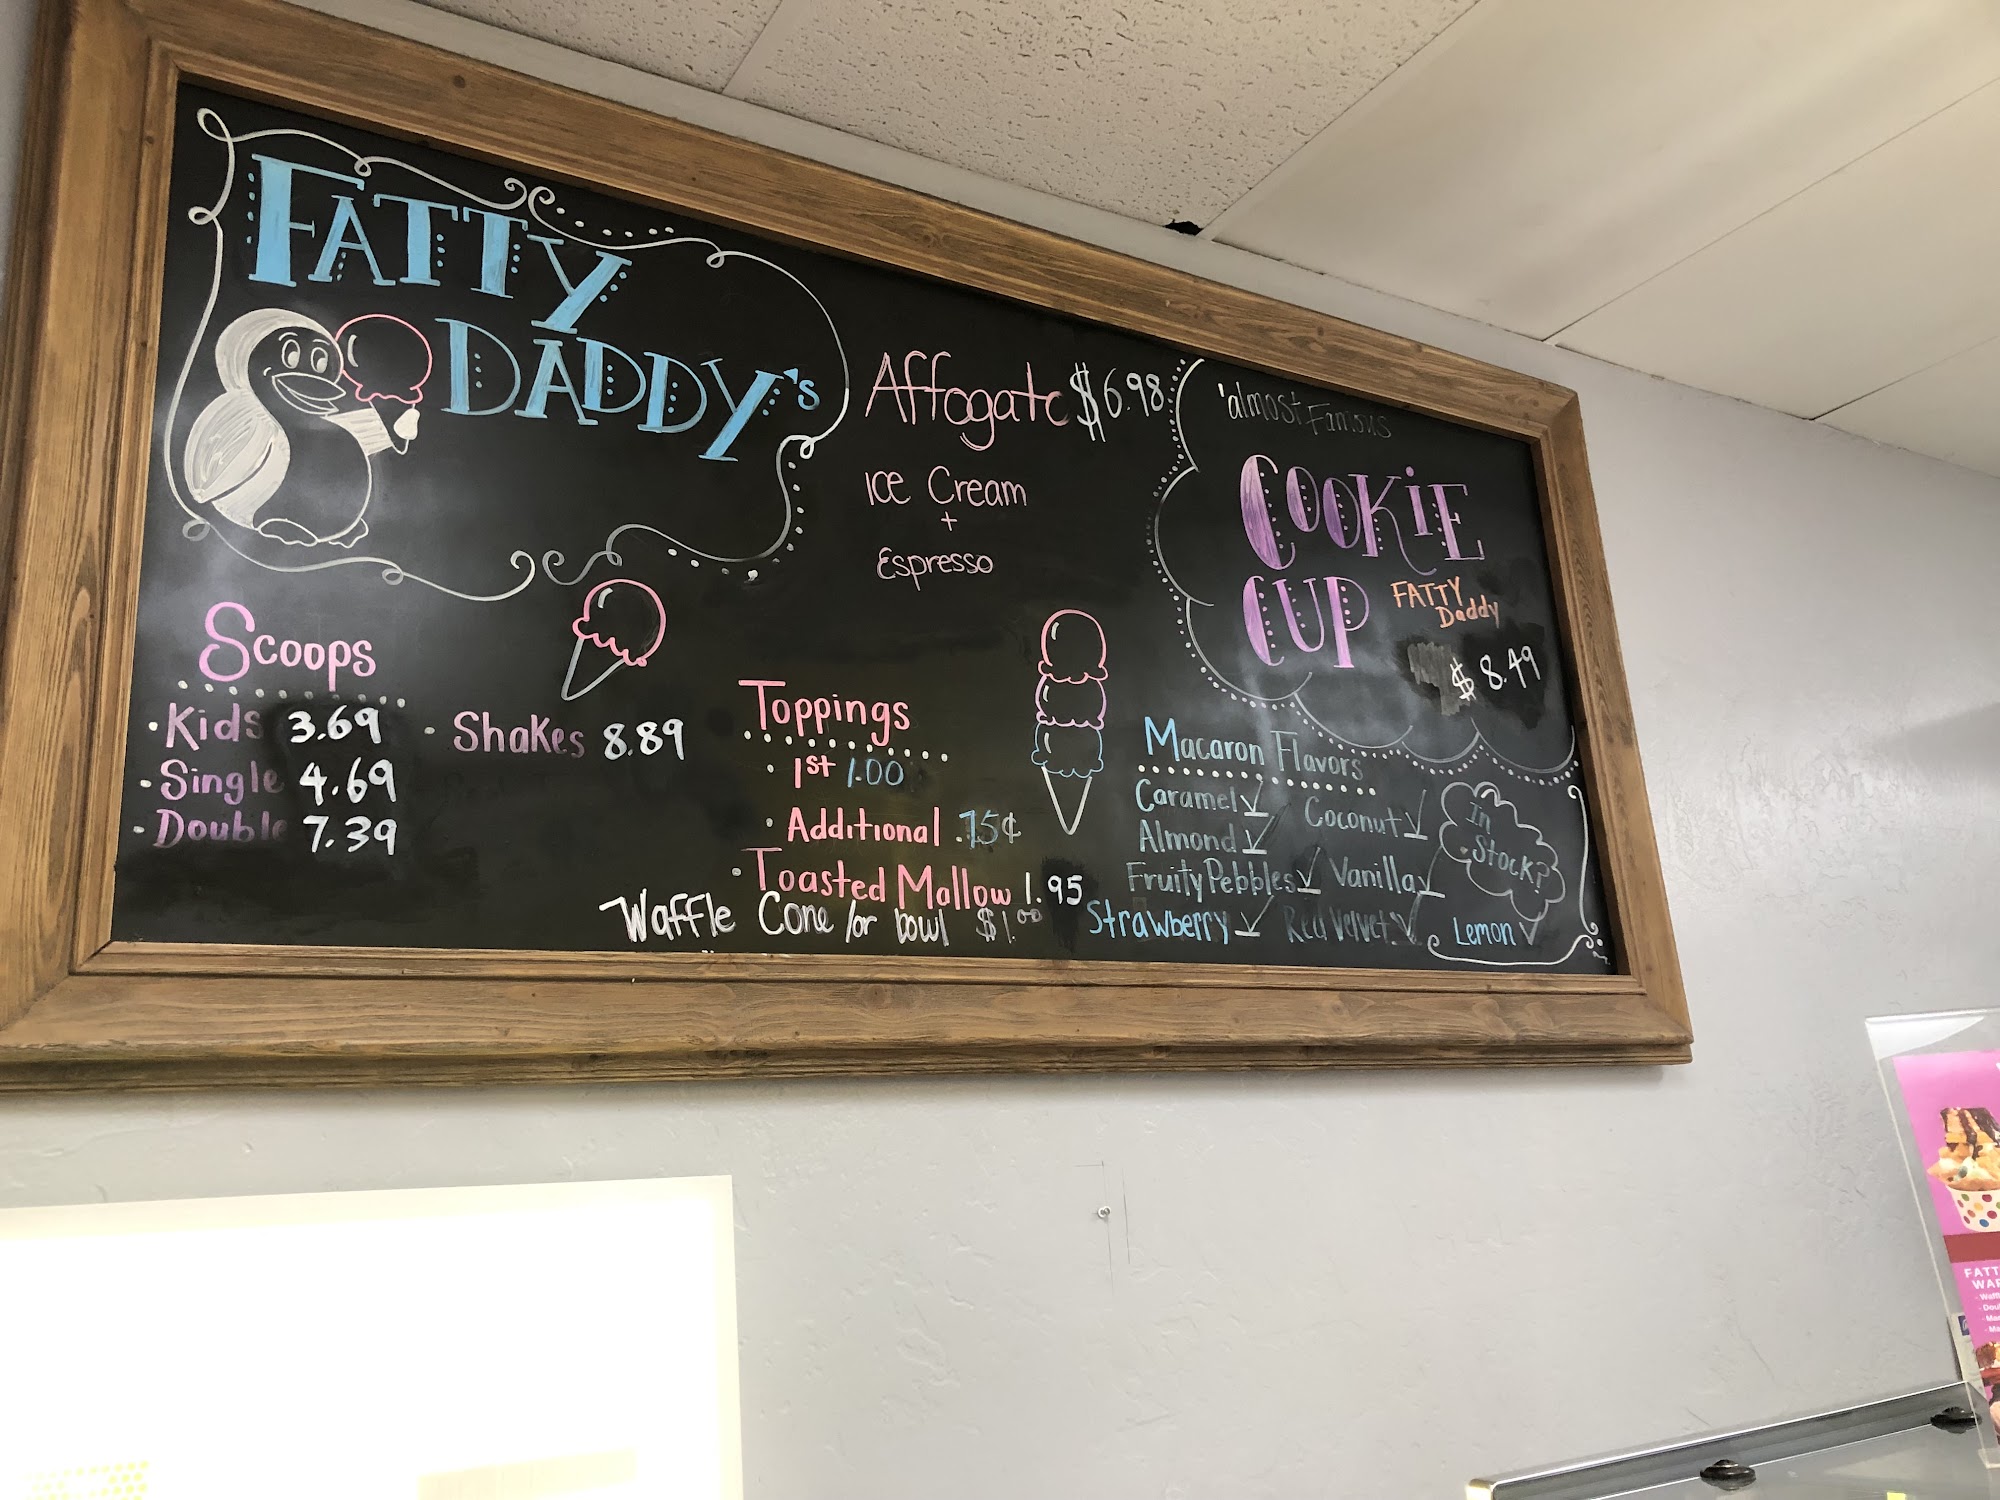 FATTY
DADDY's
Affogato $6.98
Ice Cream
+
Espresso
'almost Famous
COOKIE
CUP
FATTY
Daddy
$8.49
Scoops
· Kids 3.69
· Single 4.69
· Double 7.39
· Shakes 8.89
Toppings
· 1st 1.00
· Additional .75¢
· Toasted Mallow 1.95
Waffle Cone /or bowl $1.00
Macaron Flavors
Caramel ✓
Almond ✓
Fruity Pebbles ✓
Strawberry ✓
Coconut ✓
Vanilla ✓
Red Velvet ✓
In
Stock?
Lemon ✓